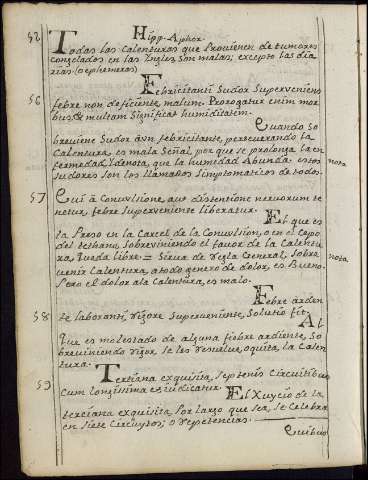 Hipp. Aphor.
52 Todas las Calenturas que Provienen de tumores
congelados en las Ingles son malas; excepto las dia
rias (o ephemeras)
Febricitanti Sudor Superveniens
56 febre non deficiente, malum. Prorogatur enim mor
bus, & multam significat humiditatem.
Quando So
breviene Sudor âun febricitante, perseverando la
Calentura, es mala Señal, por que se prolonga la en
fermedad, idenota, que la humedad Abunda: estos nota
Sudores son los llamados Simptomaticos de todos.
57 Qui â Convulsione, aut distentione nervorum te
netur, febre superveniente liberatur.
El que es
ta Preso en la Carcel de la Convulsion, o en el Cepo
del tethano, sobreviniendo el favor de la Calentu
ra, queda libre = Sirva de regla General, Sobre nota
venir Calentura, a todo genero de dolor, es Bueno.
Pero el dolor ala Calentura, es malo.
Febre arden
58 te laboranti, rigore Superveniente, Solutio fit.
Al
que es molestado de alguna fiebre ardiente, so
breviniendo rigor, se les resuelve, o quita, la Calen
tura.
59 Tertiana exquisita, septenis Circuitibus
Cum longissima est, iudicatur. El Xuycio de la
terciana exquisita, por largo que sea, se Celebra
en siete Circuytos; o repetencias.
Quibus